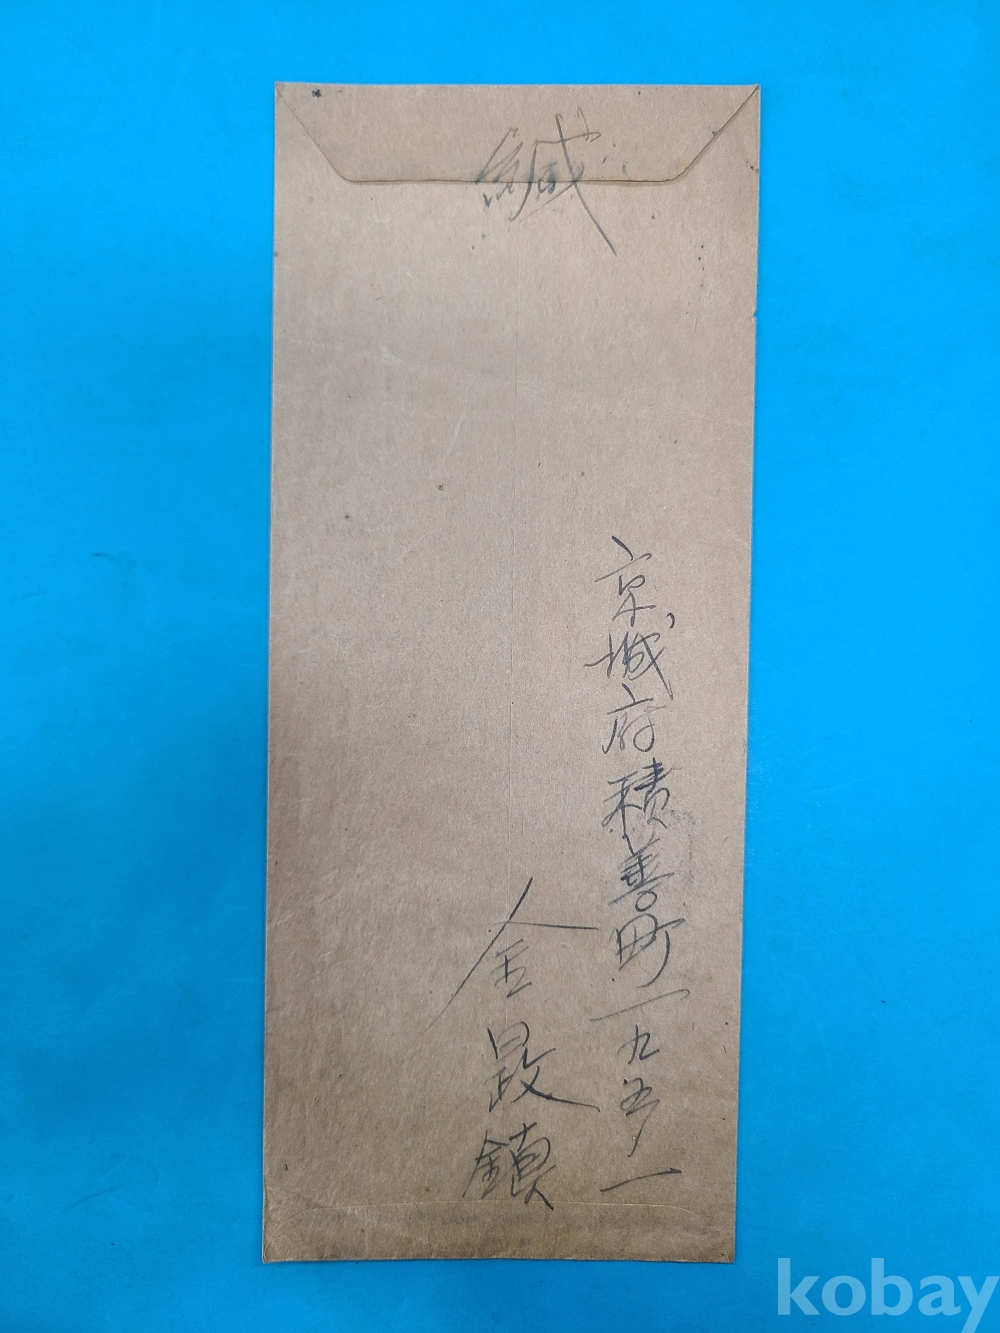 緘
京城府積善町一九五ノ一
金㬚鎭
kobay